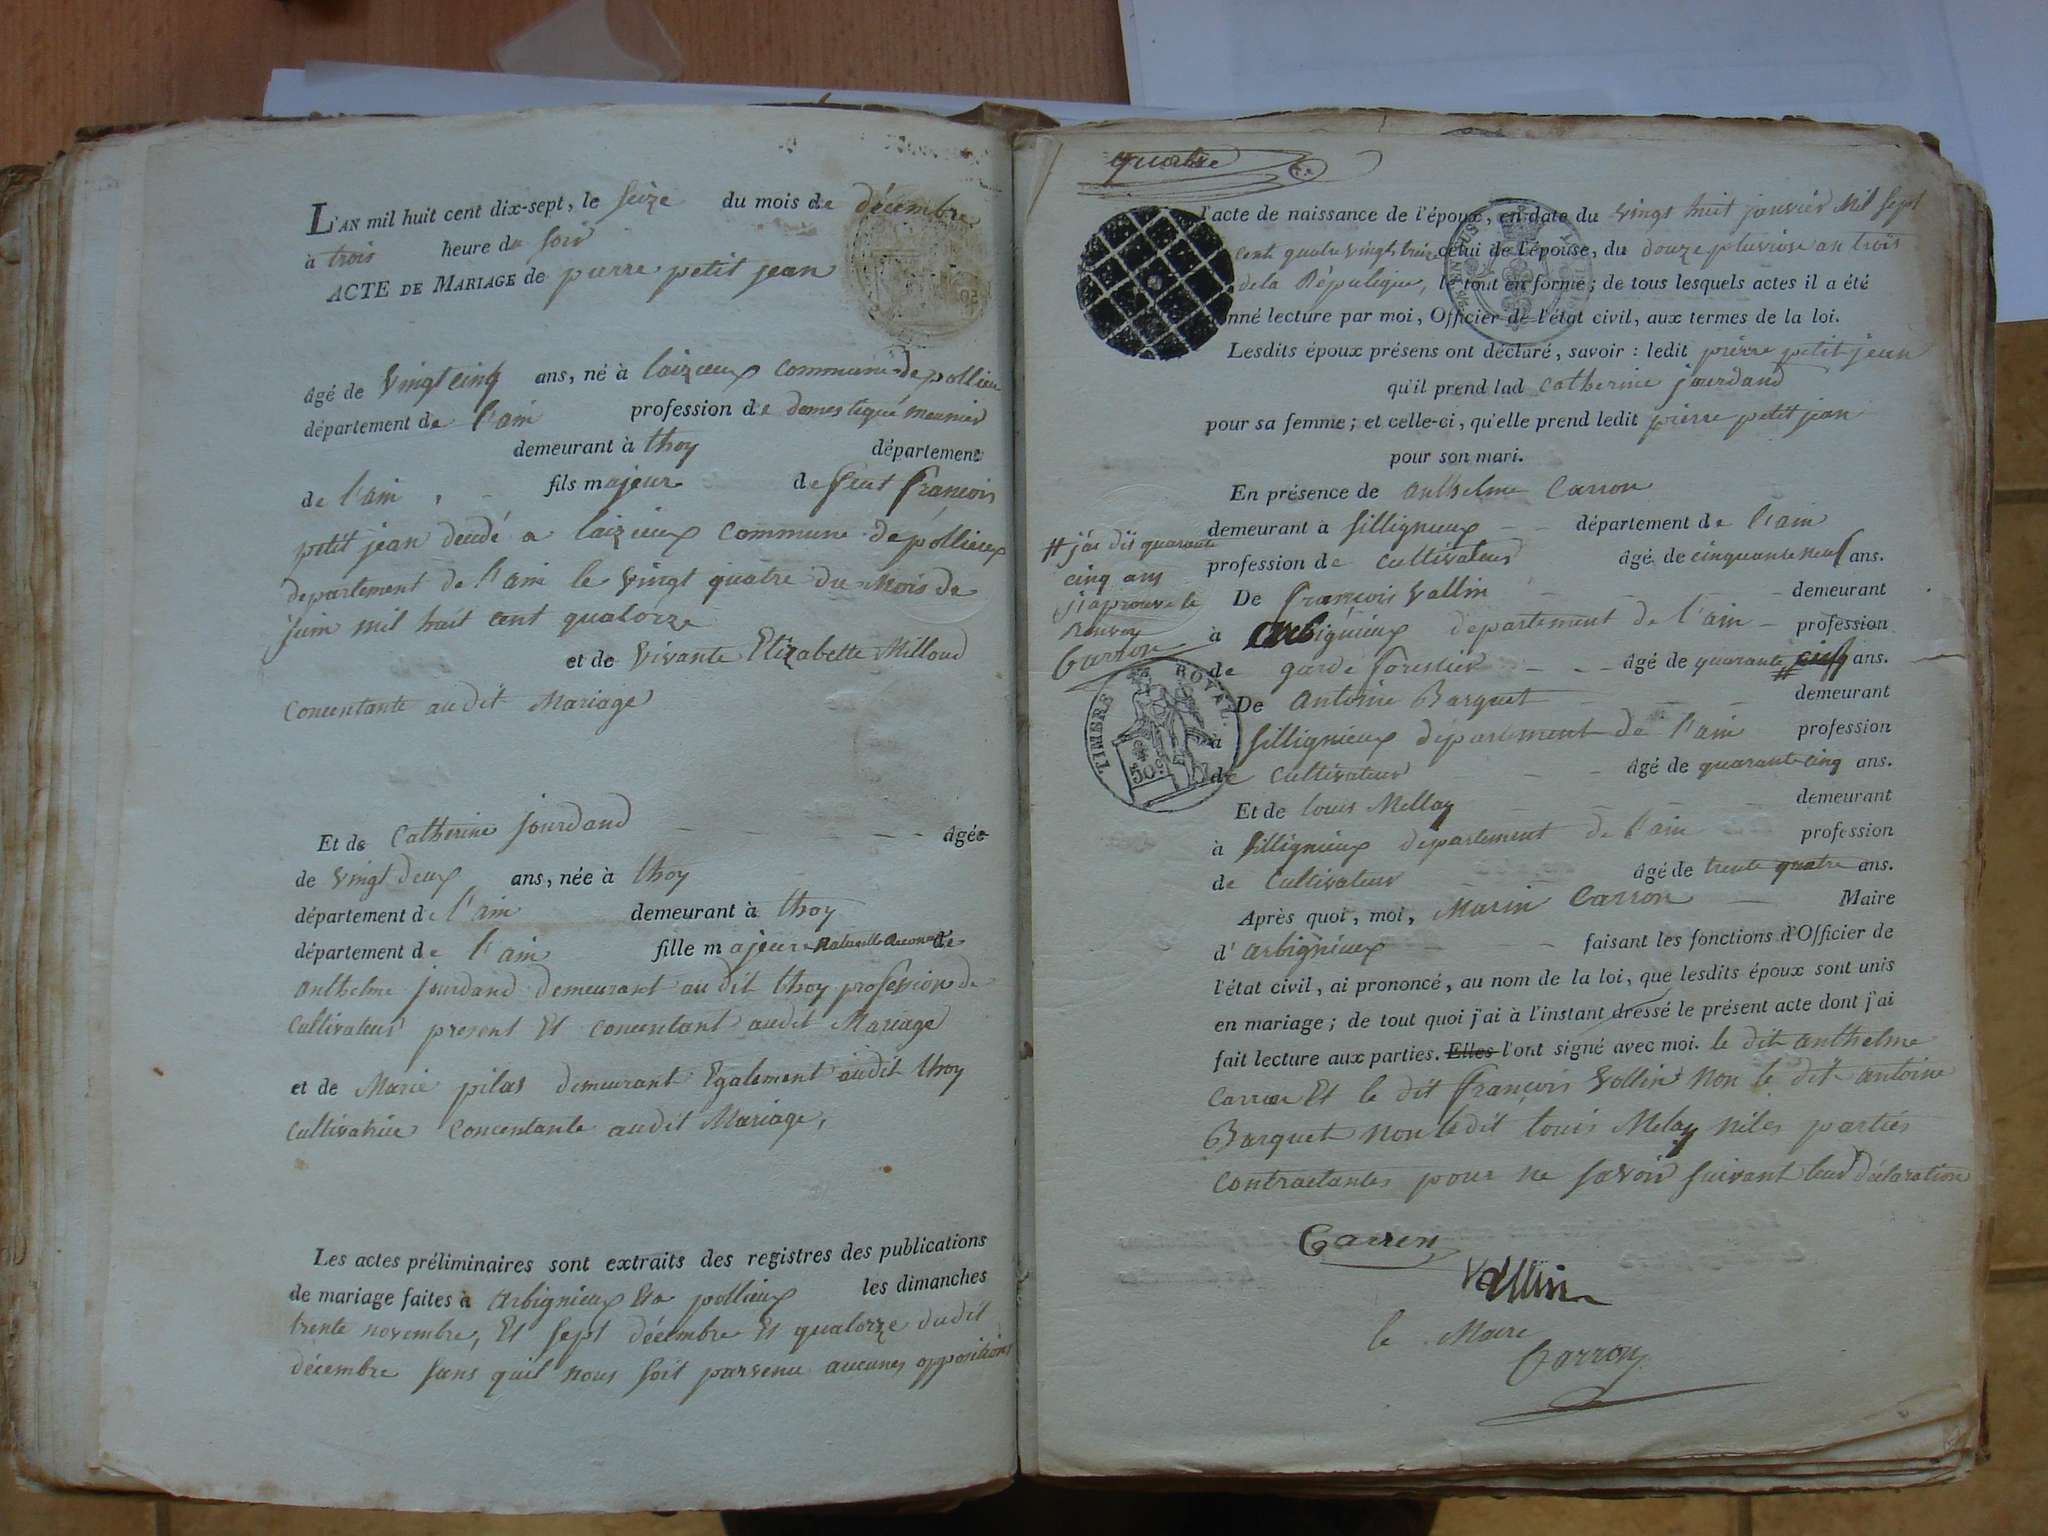 L'AN mil huit cent dix-sept, le seize du mois de décembre
à trois heure du soir
ACTE DE MARIAGE de pierre petit jean
âgé de vingt cinq ans, né à laizieux commune de pollieu
département de l'ain profession de domestique meunier
demeurant à thoy département
de l'ain fils majeur de feut françois
petit jean decidé a laizieux commune de pollieux
departement de l'ain le vingt quatre du mois de
juin mil huit cent quatorze
et de vivante Elizabette Milloud
concentante au dit Mariage
Et de Catherine jourdand âgée
de vingt deux ans, née à thoy
département de l'ain demeurant à thoy
département de l'ain fille majeure naturelle de
anthelme jourdand demeurant au dit thoy profession de
cultivateur present Et concentant audit Mariage
et de Marie pilas demeurant Egalement audit thoy
cultivatrice concentante audit Mariage,
Les actes préliminaires sont extraits des registres des publications
de mariage faites à arbignieux Et a pollieux les dimanches
trente novembre, Et sept décembre Et quatorze dudit
décembre sans quil nous soit parvenu aucunes oppositions
quatre
l'acte de naissance de l'époux, en date du vingt huit janvier Mil sept
cent quatre vingt treize celui de l'épouse, du douze pluviose an trois
de la Républigue, le tout en forme; de tous lesquels actes il a été
nné lecture par moi, Officier de l'état civil, aux termes de la loi.
Lesdits époux présens ont déclaré, savoir: ledit pierre petit jean
qu'il prend lad catherine jourdand
pour sa femme; et celle-ci, qu'elle prend ledit pierre petit jean
pour son mari.
En présence de anthelme Carron
demeurant a sillignieux département de l'ain
profession de cultivateur âgé de cinquante neuf ans.
De françois vallin demeurant
à arbignieux departement de l'ain profession
de garde forestier âgé de quarante cinq ans.
De antoine Barquet demeurant
à sillignieux département de l'ain profession
de cultivateur âgé de quarante cinq ans.
Et de louis Mellay demeurant
à sillignieux departement de l'ain profession
de cultivateur âgé de trente quatre ans.
Après quoi, moi, Marin Carron Maire
d'arbignieux faisant les fonctions d'Officier de
l'état civil, ai prononcé, au nom de la loi, que lesdits époux sont unis
en mariage; de tout quoi j'ai à l'instant dressé le présent acte dont j'ai
fait lecture aux parties. Elles l'ont signé avec moi. le dit anthelme
Carron Et le dit françois vollin non le dit antoine
Barquet non le dit louis Melay ni les parties
contractantes pour ne savoir suivant leur déclaration
# j'ai dit quarante
cinq ans
j'aprouve le
renvoy
Carron
TIMBRE ROYAL
50 C
Carron
Vallin
le Maire
Carron